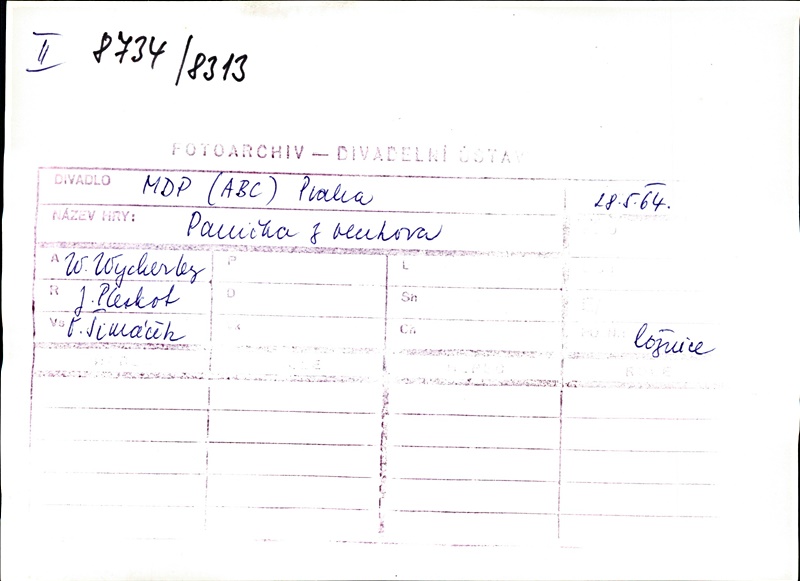 II 8734/8313
FOTOARCHIV — DIVADELNÍ ÚSTAV
DIVADLO MDP (ABC) Praha 28.5.64.
NÁZEV HRY: Panička z venkova
A W. Wycherley P L
R J. Pleskot D Sh
Vs V. Šimáček Ch
ložnice